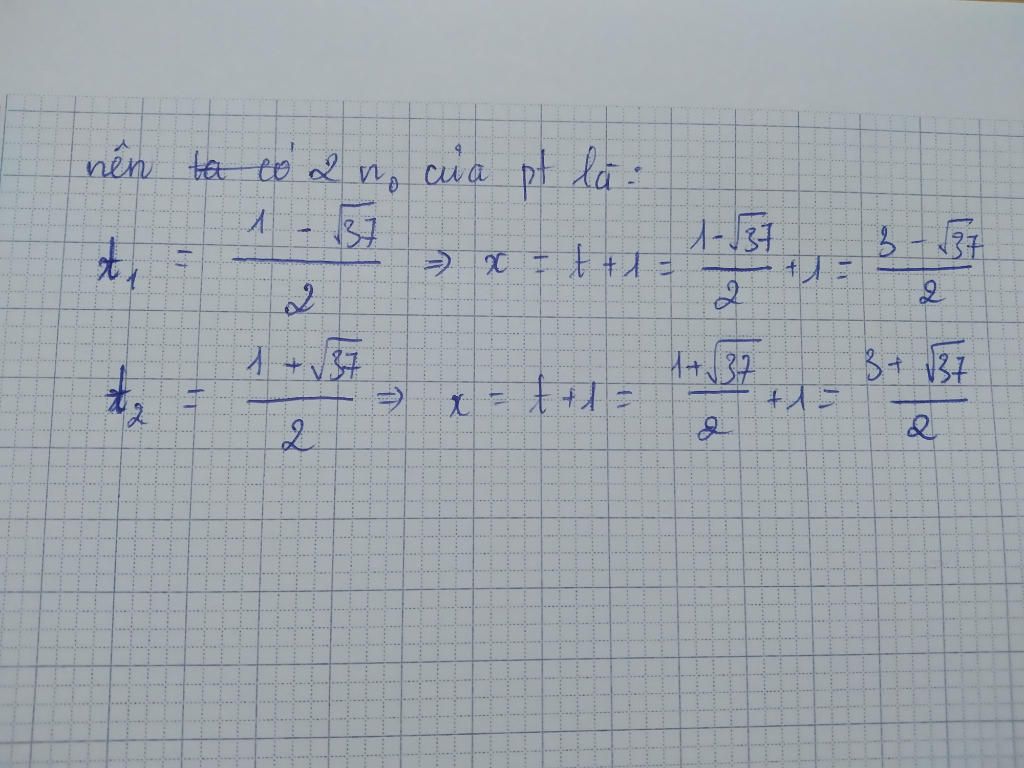 nên ta có 2 no của pt là:
t₁ = (1 - √37)/2 ⇒ x = t + 1 = (1 - √37)/2 + 1 = (3 - √37)/2
t₂ = (1 + √37)/2 ⇒ x = t + 1 = (1 + √37)/2 + 1 = (3 + √37)/2